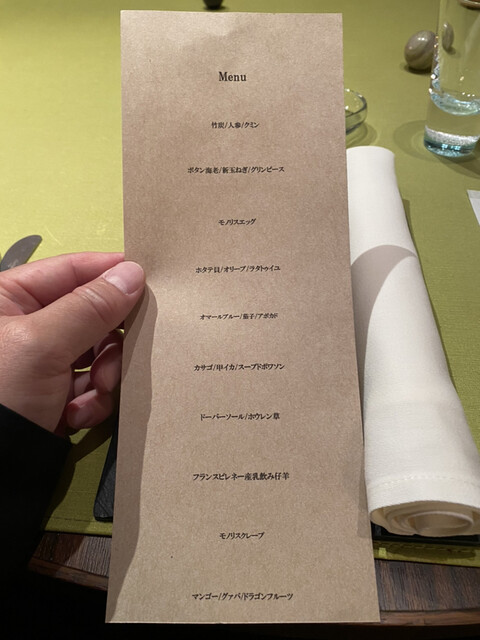 Menu
竹炭/人参/クミン
ボタン海老/新玉ねぎ/グリンピース
モノリスエッグ
ホタテ貝/オリーブ/ラタトゥイユ
オマールブルー/茄子/アボカド
カサゴ/甲イカ/スープドポワソン
ドーバーソール/ホウレン草
フランスピレネー産乳飲み仔羊
モノリスクレープ
マンゴー/グァバ/ドラゴンフルーツ